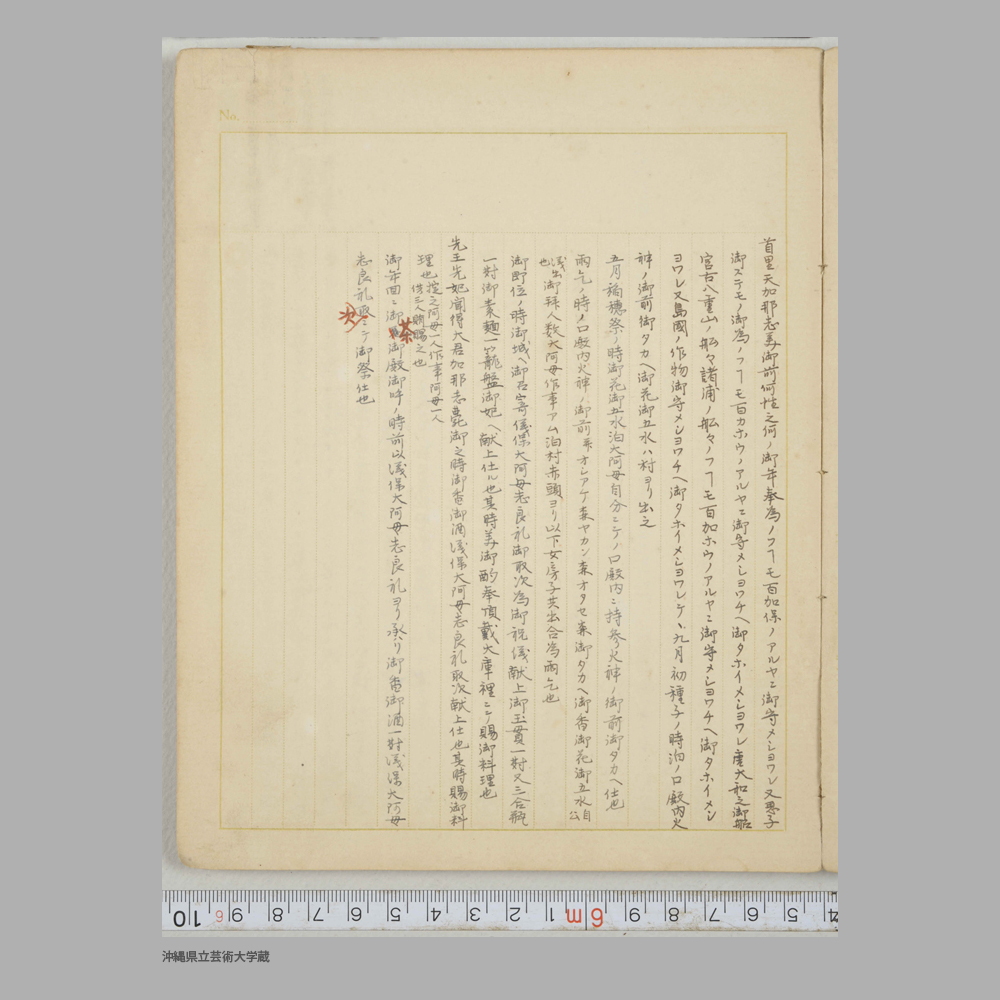 首里天加那志美御前何性之何ノ御年奉為ノフーモ百加保ノアルヤニ御守メシヨワレ又思子
御ズデモノ御為ノフーモ百カホウノアルヤニ御守メシヨワチヘ御タホイメシヨワレ唐大和之御船
宮古八重山ノ船々諸浦ノ船々ノフーモ百加ホウノアルヤニ御守メシヨワチヘ御タホイメシ
ヨワレ又島國ノ作物御守メシヨワチヘ御タホイメシヨワレケヽ九月初種子ノ時泊ノロ殿内火
神ノ御前御タカヘ御花御五水ハ村ヨリ出之
五月稲穂祭ノ時御花御五水泊大阿母自分ニテノロ殿内ニ持参火神ノ御前御タカヘ仕也
雨乞ノ時ノロ殿内火神ノ御前并オシアケ森ヤカン森オタセ森御タカヘ御香御花御五水自公
儀出御拝人数大阿母作事アム泊村赤頭ヨリ以下女房子共出合為雨乞也
也
御即位ノ時御城ヘ御召寄儀保大阿母志良礼御取次為御祝儀献上御玉貫一對又三合瓶
一對御素麺一籠盤御妃ヘ献上仕ル也其時美御酌奉頂戴大庫裡ニテ賜御料理也
先王先妃聞得大君加那志薨御之時御香御酒儀保大阿母志良礼取次献上仕也其時賜御料
理也掟之阿母一人作事阿母一人
供三人賄賜之也
御年回ニ御茶御殿御時ノ時前以儀保大阿母志良礼ヨリ承リ御香御酒一對儀保大阿母
志良礼取次ニテ御祭仕也
茶
次
No.
10 9 8 7 6 5 4 3 2 1 6m 9 8 7 6 5 4
沖縄県立芸術大学蔵